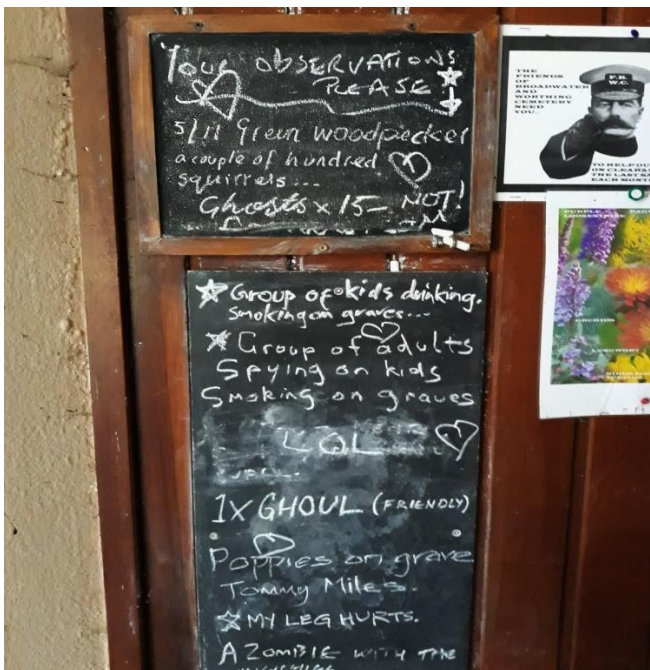 Your OBSERVATIONS
PLEASE
5/11 Green woodpecker
a couple of hundred
squirrels...
Ghosts x 15 - NOT!
Group of kids drinking.
Smoking on graves...
Group of adults
Spying on kids
Smoking on graves
LOL
1X GHOUL (FRIENDLY)
Poppies on grave
Tommy Miles.
MY LEG HURTS.
A ZOMBIE WITH THE
THE
FRIENDS
OF
BROADWATER
AND
WORTHING
CEMETERY
NEED
YOU.
F.B.
W.C.
TO HELP OUT
ON
THE LAST
EACH MONTH
PURPLE
LOOSESTRIFE
LUNGWORT